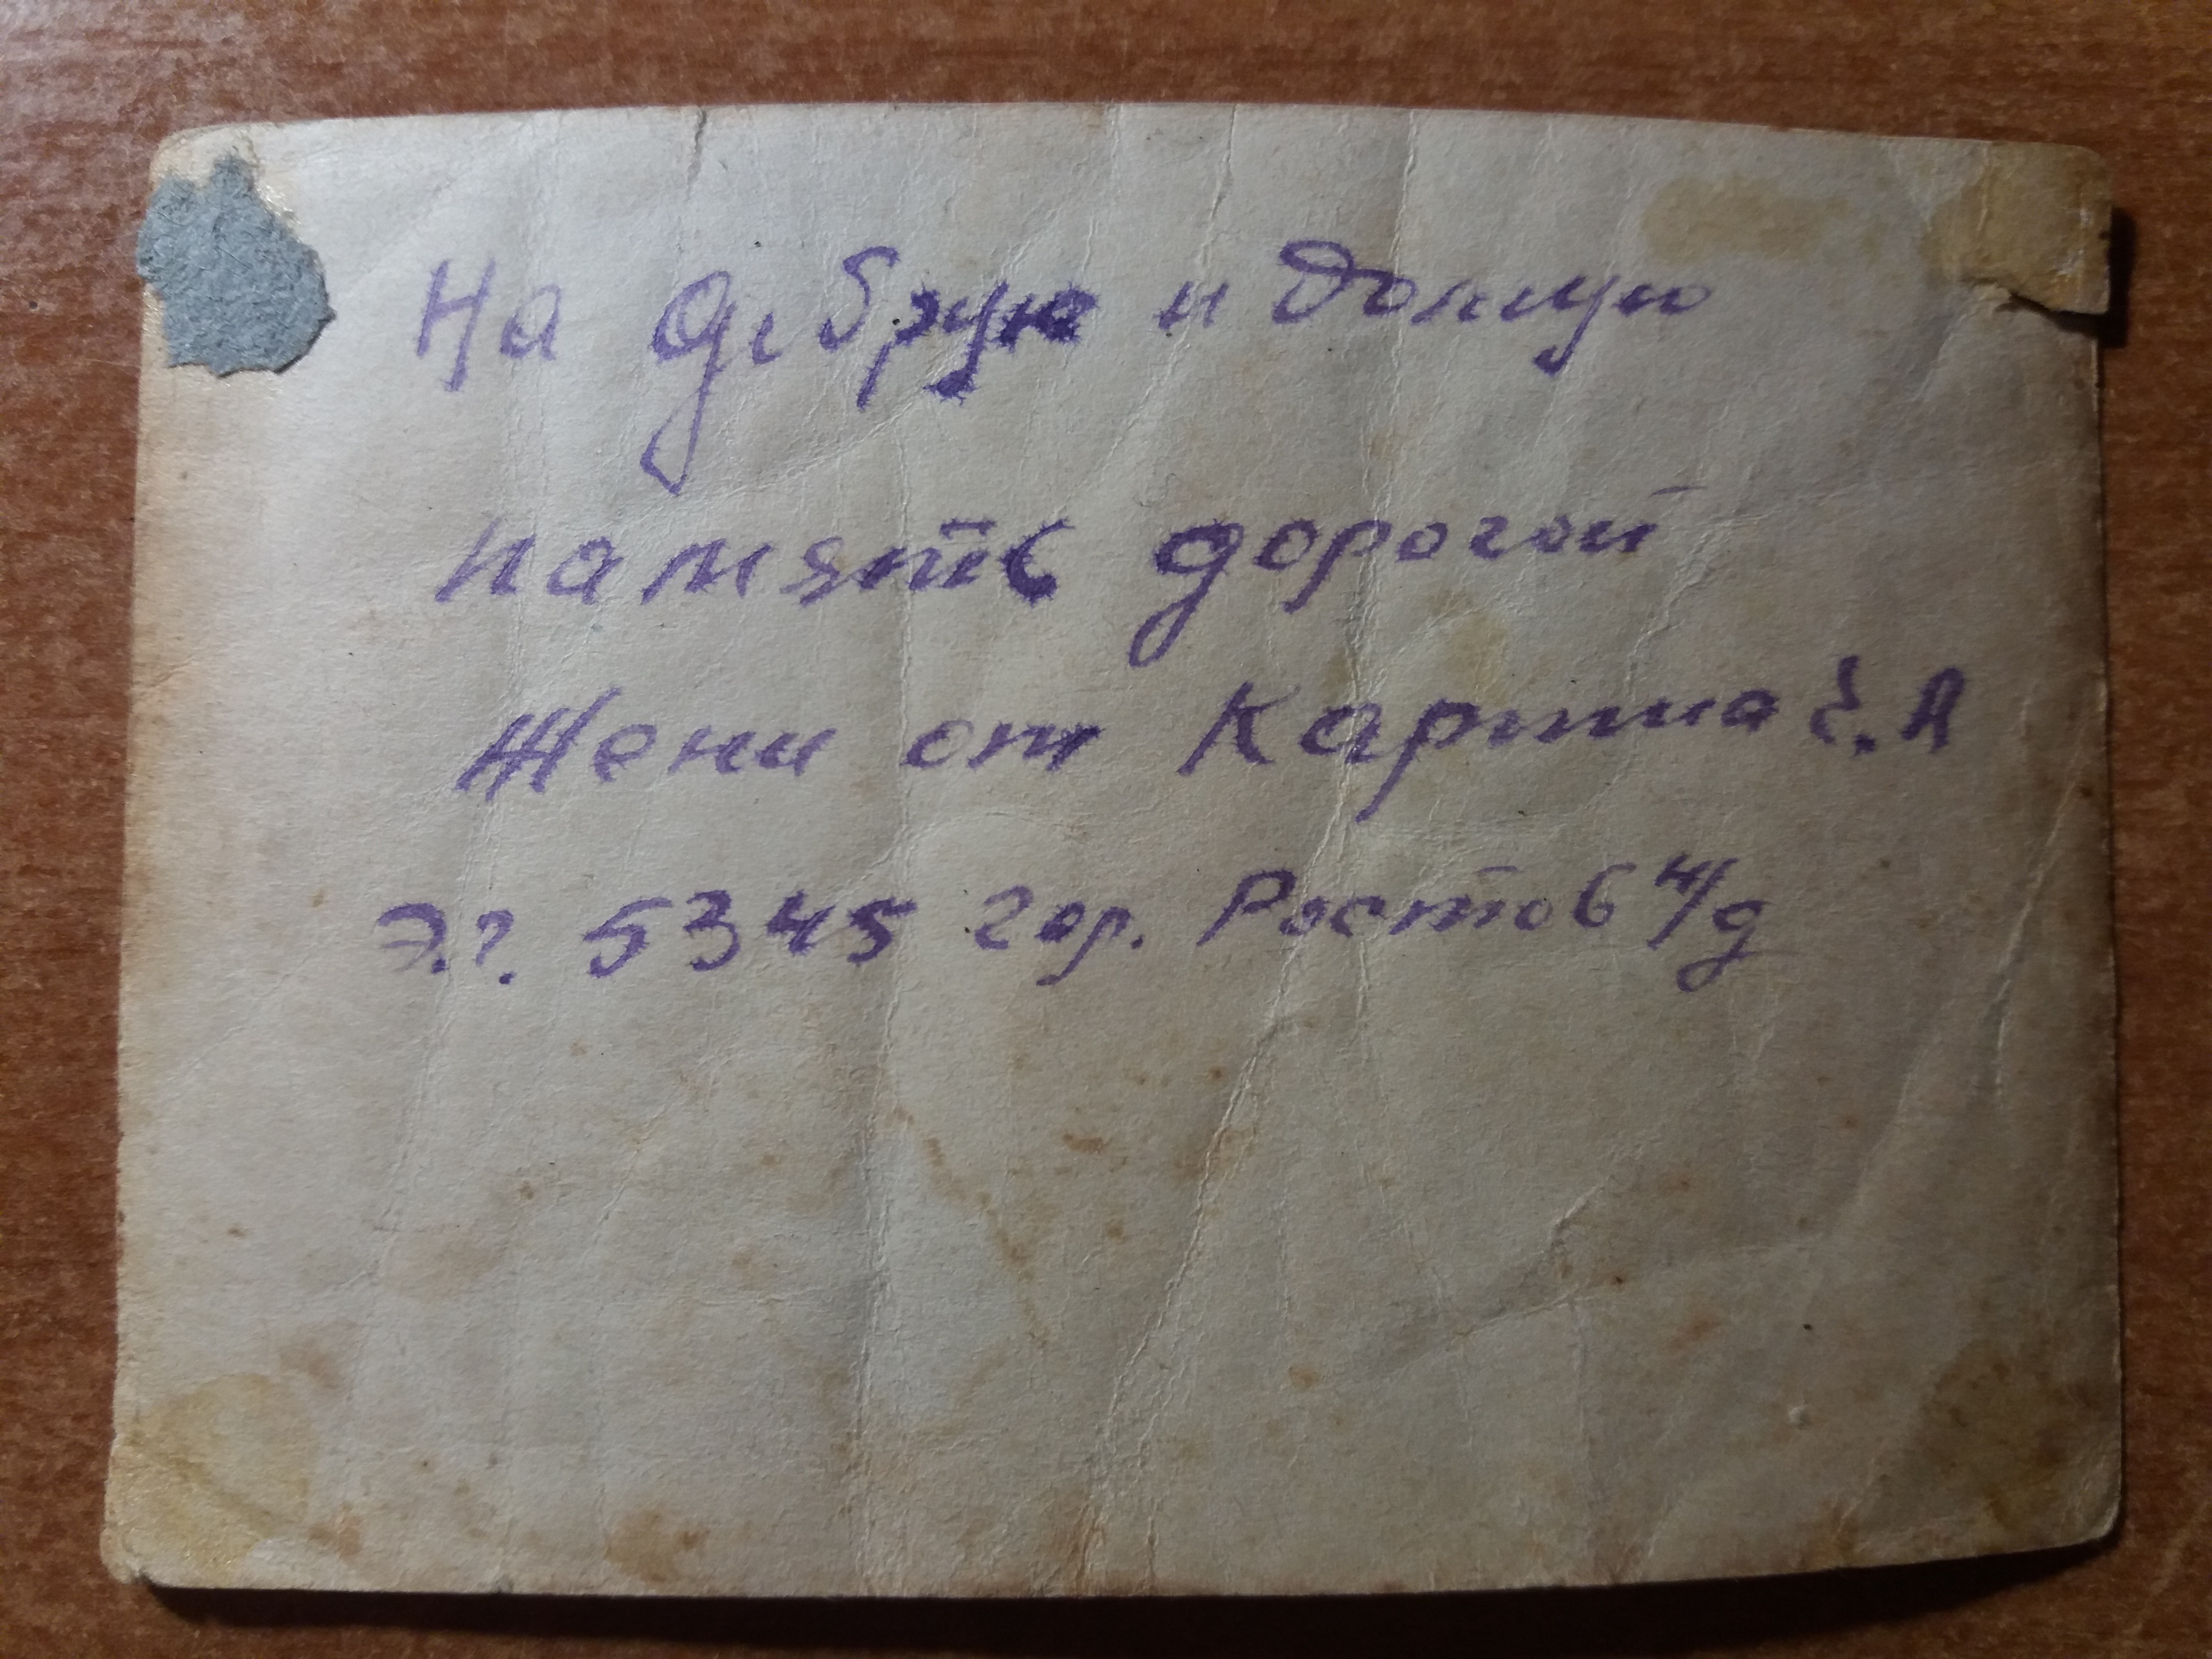 На добрую и долгую
память дорогой
Жени от Картша Е. А
Э.Г. 5345 гор. Ростов н/д